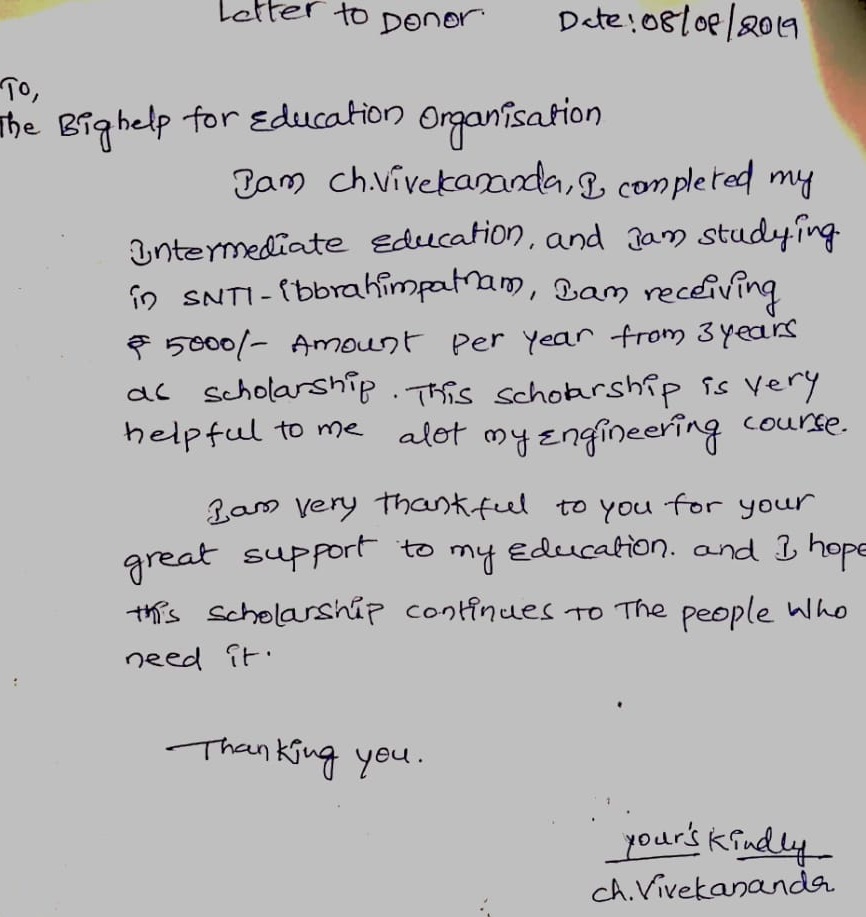 Letter to Donor. Date: 08/08/2019
To,
The Bighelp for Education Organisation
I am ch.Vivekananda, I completed my
Intermediate Education, and I am studying
in SNTI-ibbrahimpatnam, I am receiving
₹ 5000/- Amount per year from 3 years
as scholarship. This scholarship is very
helpful to me alot my Engineering course.
I am very thankful to you for your
great support to my Education. and I hope
this scholarship continues to The people who
need it.
Thanking you.
your's kindly
ch.Vivekananda